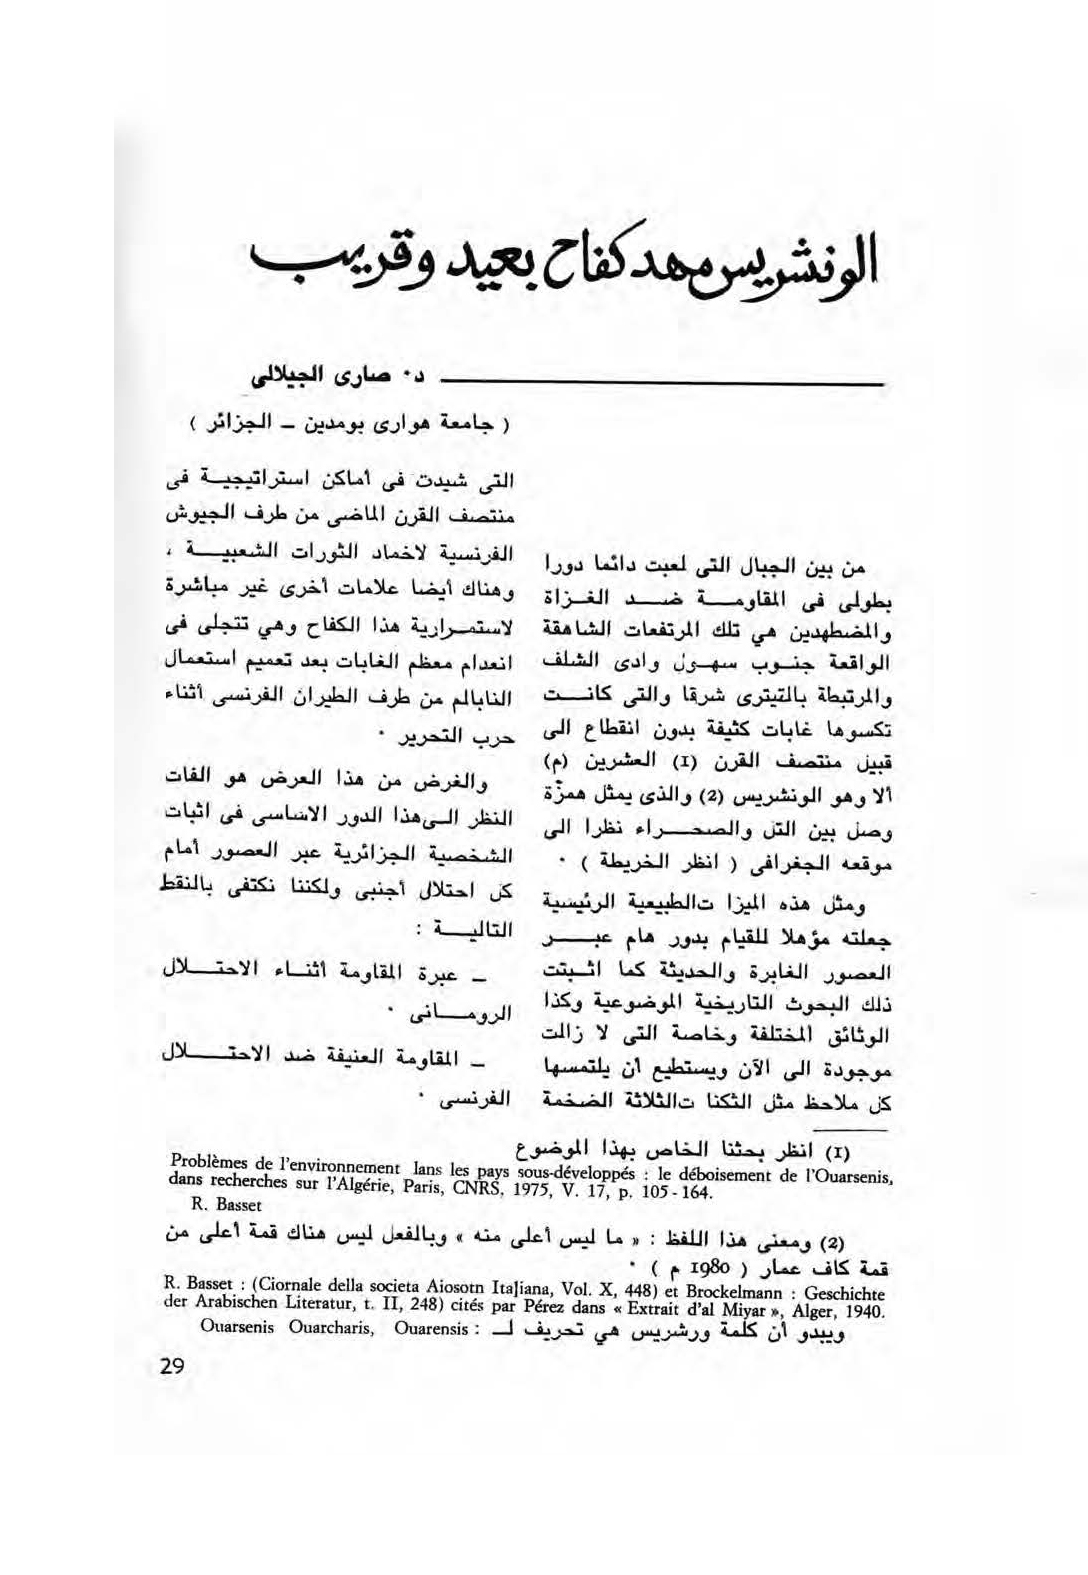 الونشريس مهد كفاح بعيد وقريب
د٠ صارى الجيلالى
( جامعة هوارى بومدين – الجزائر )
من بين الجبال التى لعبت دائما دورا
بطولى فى المقاومة ضد الغزاة
والمضطهدين هي تلك المرتفعات الشاهقة
الواقعة جنوب سهول وادى الشلف
والمرتبطة بالتيترى شرقا والتى كانت
تكسوها غابات كثيفة بدون انقطاع الى
قبيل منتصف القرن (1) العشرين (م)
ألا وهو الونشريس (2) والذى يمثل همزة
وصل بين التل والصحراء نظرا الى
موقعه الجغرافى ( انظر الخريطة ) ٠
ومثل هذه الميزا تالطبيعية الرئيسية
جعلته مؤهلا للقيام بدور هام عبر
العصور الغابرة والحديثة كما اثبتت
ذلك البحوث التاريخية الموضوعية وكذا
الوثائق المختلفة وخاصة التى لا زالت
موجودة الى الآن ويستطيع أن يلتمسها
كل ملاحظ مثل الثكنا تالثلاثة الضخمة
التى شيدت فى أماكن استراتيجية فى
منتصف القرن الماضى من طرف الجيوش
الفرنسية لاخماد الثورات الشعبية ،
وهناك أيضا علامات أخرى غير مباشرة
لاستمرارية هذا الكفاح وهي تتجلى فى
انعدام معظم الغابات بعد تعميم استعمال
النابالم من طرف الطيران الفرنسى أثناء
حرب التحرير ٠
والغرض من هذا العرض هو الفات
النظر الىهذا الدور الاساسى فى اثبات
الشخصية الجزائرية عبر العصور أمام
كل احتلال أجنبى ولكننا نكتفى بالنقط
التالية :
– عبرة المقاومة أثناء الاحتلال
الرومانى ٠
– المقاومة العنيفة ضد الاحتلال
الفرنسى ٠
(1) انظر بحثنا الخاص بهذا الموضوع
Problèmes de l'environnement lans les pays sous-développés : le déboisement de l'Ouarsenis,
dans recherches sur l'Algérie, Paris, CNRS, 1975, V. 17, p. 105-164.
R. Basset
(2) ومعنى هذا اللفظ : « ما ليس أعلى منه » وبالفعل ليس هناك قمة أعلى من
قمة كاف عمار ( 1980 م ) ٠
R. Basset : (Ciornale della societa Aiosotn Italiana, Vol. X, 448) et Brockelmann : Geschichte
der Arabischen Literatur, t. II, 248) cités par Pérez dans « Extrait d'al Miyar », Alger, 1940.
ويبدو أن كلمة ورشريس هي تحريف لـ : Ouarsenis Ouarcharis, Ouarensis
29